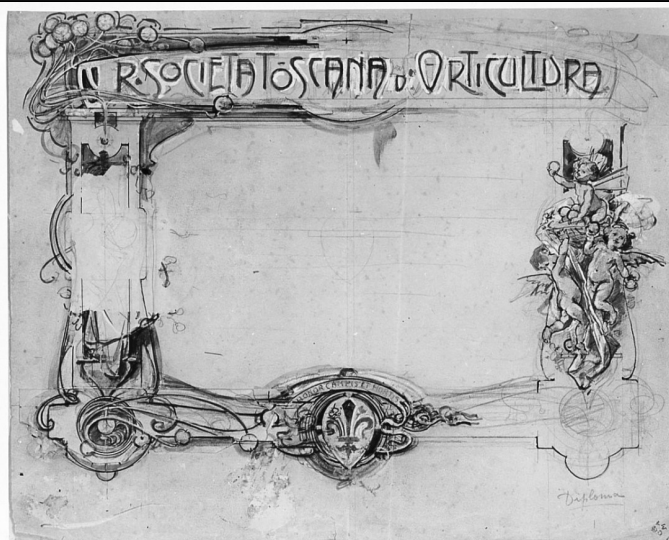 R. SOCIETA TOSCANA D'ORTICULTURA
Diploma